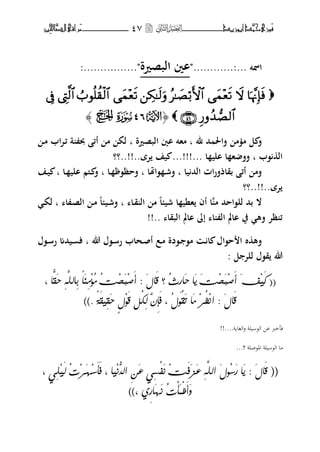 ٤٧
اسمه ...:............"عين البصيرة"................:
﴿ فَإِنَّهَا لَا تَعْمَى ٱلْأَبْصَٰرُ وَلَٰكِن تَعْمَى ٱلْقُلُوبُ ٱلَّتِى فِى
ٱلصُّدُورِ ﴾ ﴿٤٦ سورة الحج﴾
وكل مؤمن والحمد لله ، معه عين البصيرة ، لكن من أتى بحفنة تراب من
الذنوب ، ووضعها عليها ...!!!...كيف يرى..!!..؟؟
ومن أتى بقاذورات الدنيا ، وشهواتها ، وحظوظها ، وكتم عليها ، كيف
يرى..!!..؟؟
لا بد للواحد منَّا أن يعطيها شيئاً من النقاء ، وشيئاً من الصفاء ، لكي
تنظر وهي في عالم الفناء إلى عالم البقاء ..!!
وهذه الأحوال كانت موجودة مع أصحاب رسول الله ، فسيدنا رسول
الله يقول للرجل :
(( كَيْفَ أَصْبَحْتَ يَا حَارِثُ ؟ قَالَ : أَصْبَحْتُ مُؤْمِنَاً بِاللهِ حَقَّا ،
قَالَ : انْظُرْ مَا تَقُوْلُ ، فَإِنَّ لِكُلِّ قَوْلٍ حَقِيْقَة .))
فأخبر عن الوسيلة والغاية...!!
ما الوسيلة الموصلة ؟...
(( قَالَ : يَا رَسُوْلَ اللهِ عَزَفْتُ نَفْسِي عَنِ الدُّنْيَا ، فَأَسْهَرْتُ لَيْلِي ،
وَأَظْمَأْتُ نَهَارِي ،))